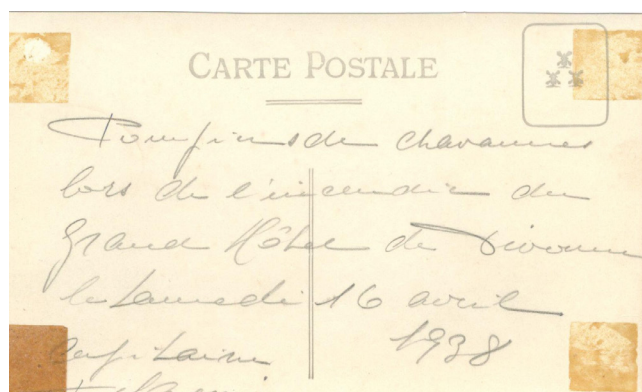 CARTE POSTALE
Pompiers de chavannes
lors de l'incendie du
Grand Hôtel de Divonne
le Samedi 16 avril
1938
Capitaine